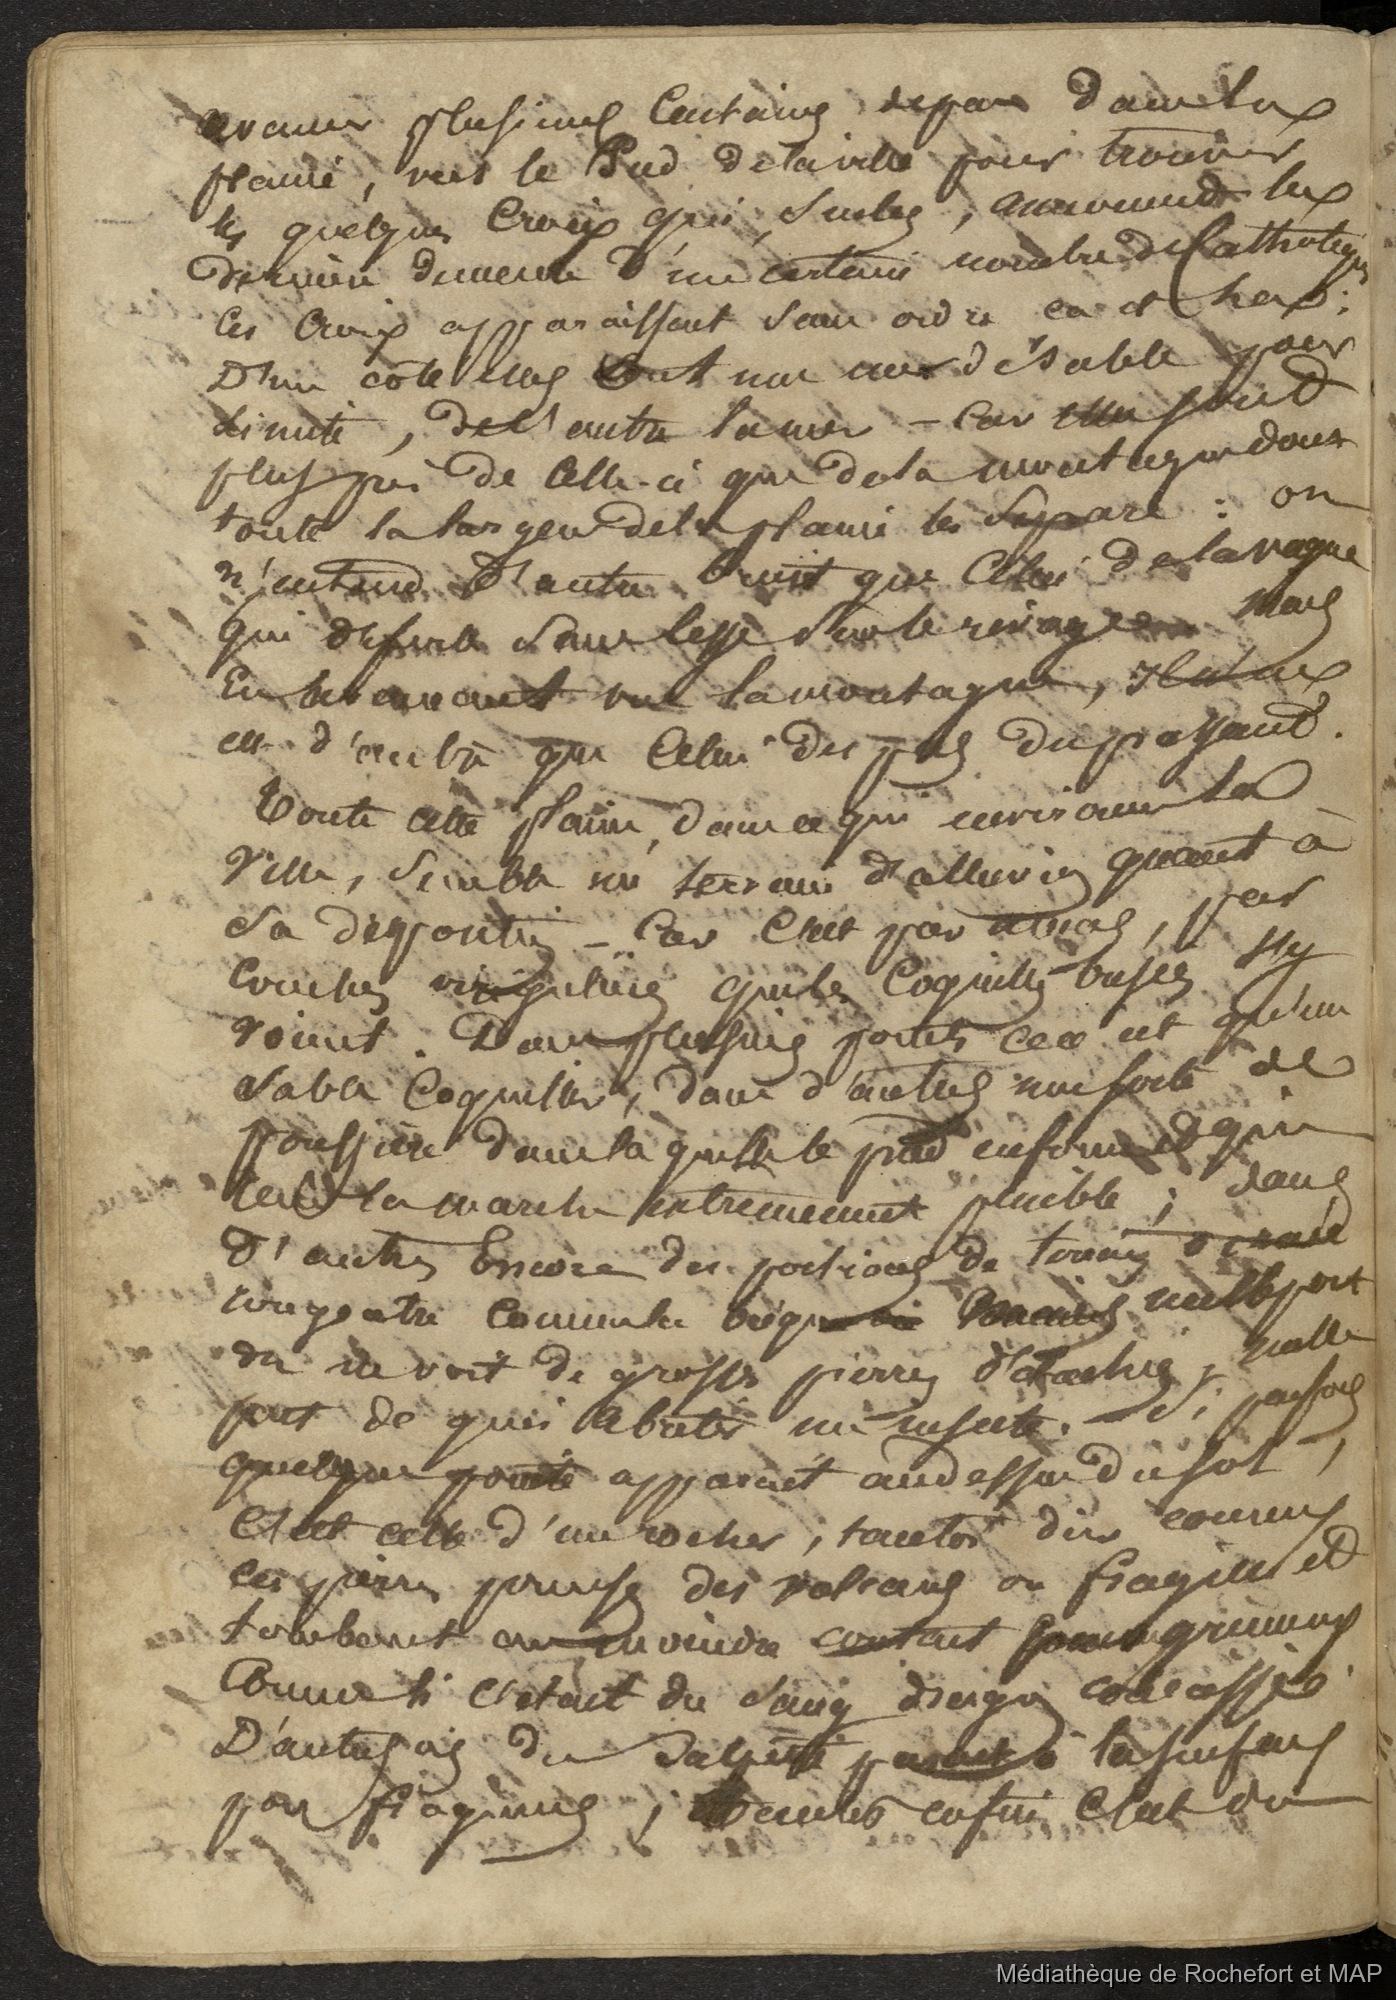 avancer plusieurs Centaines de pas dans la
plaine, vers le Sud de la ville pour trouver
les quelques Croix qui, seules, annoncent la
dernière demeure d'un certain nombre de Catholiques
Ces Croix apparaissent sans ordre ça et là;
D'un côté elles ont une mer de sable pour
limite, de l'autre la mer – Car elles sont
plus près de Celle-ci que de la montagne dont
toute la largeur de la plaine les sépare : on
n'entend d'autre bruit que Celui de la vague
qui déferle sans cesse sur le rivage. Mais
En avançant vers la montagne, il n'en
est d'autre que Celui des pas du passant.
Toute cette plaine, dans ce qui environne la
Ville, semble un terrain d'alluvion quant à
sa disposition – Car C'est par amas, par
Couches irrégulières que les Coquilles brisées s'y
voient. Dans plusieurs points ce n'est qu'un
sable Coquillier, dans d'autres une sorte de
poussière dans laquelle le pied enfonce et qui
rend la marche extrêmement pénible ; dans
d'autres Encore des portions de terrain
rougeatre Comme la brique nulle part
on ne voit de grosses pierres détachées, nulle
part de quoi abriter un insecte. – Si parfois
quelque pointe apparait au dessus du sol,
C'est celle d'un rocher, tantôt dur comme
ces pierres ponces des volcans ou fragiles et
tombant au moindre contact en grumeaux
Comme si c'etait du sang coulassé
D'autrefois du salpêtre parait à la surface
par fragmens ; enfin C'est du